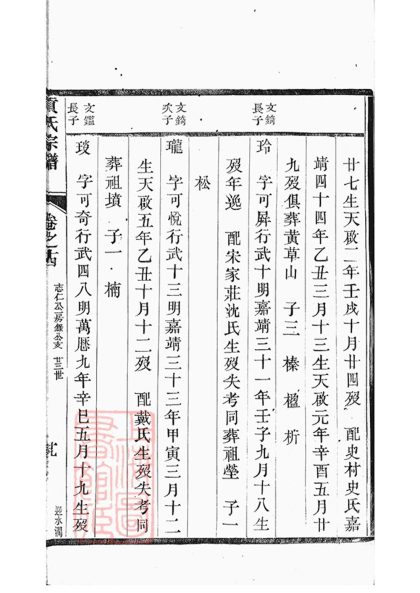 廿七生天啟二年壬戌十月廿四歿 配史村史氏嘉
靖四十四年乙丑三月十三生天啟元年辛酉五月廿
九歿俱葬黄草山 子三 榛 楹 析
文錡
長子
玲 字可屛行武十明嘉靖三十一年壬子九月十八生
歿年逸 配宋家莊沈氏生歿失考同葬祖塋 子一
松
文錡
次子
瓏 字可悅行武十三明嘉靖三十三年甲寅三月十二
生天啟五年乙丑十月十二歿 配戴氏生歿失考同
葬祖墳 子一 楠
文鑑
長子
琰 字可奇行武四八明萬曆九年辛巳五月十九生歿
項氏宗譜
卷之
志仁公 廿三世